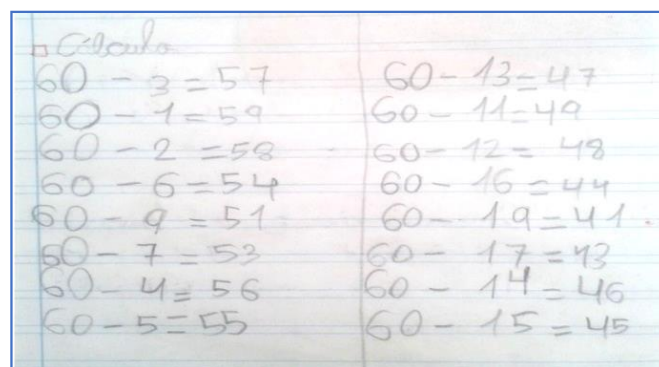 Cálculo
60 - 3 = 57
60 - 1 = 59
60 - 2 = 58
60 - 6 = 54
60 - 9 = 51
60 - 7 = 53
60 - 4 = 56
60 - 5 = 55
60 - 13 = 47
60 - 11 = 49
60 - 12 = 48
60 - 16 = 44
60 - 19 = 41
60 - 17 = 43
60 - 14 = 46
60 - 15 = 45